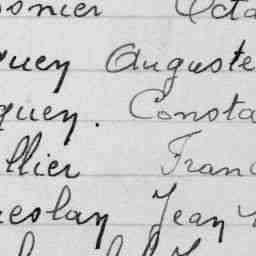 onier Octa
quey Auguste
quey. Consta
llier Franc
reslay Jean